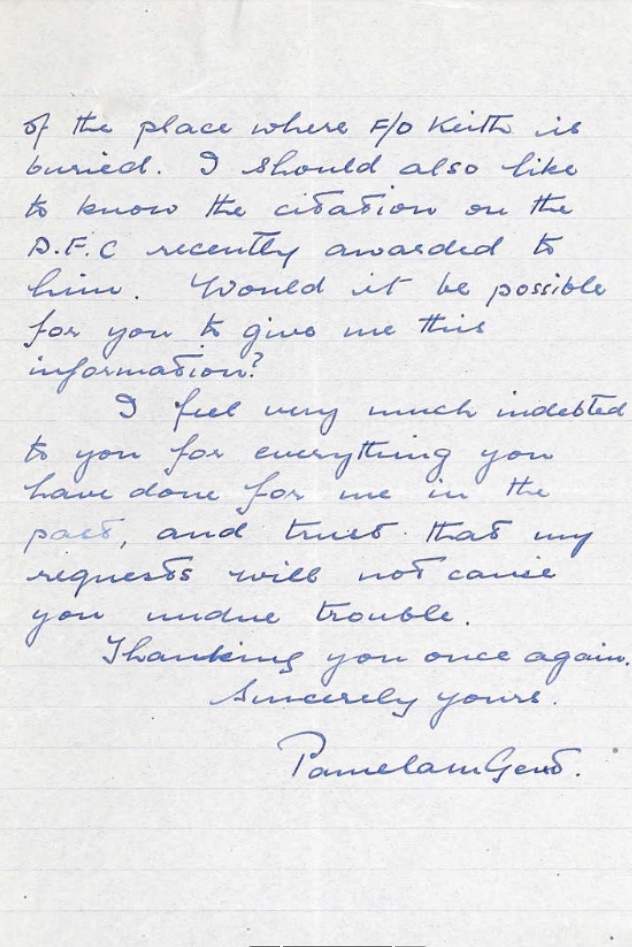 of the place where F/O Keith is
buried. I should also like
to know the citation on the
D.F.C recently awarded to
him. Would it be possible
for you to give me this
information?
I feel very much indebted
to you for everything you
have done for me in the
past, and trust that my
requests will not cause
you undue trouble.
Thanking you once again.
Sincerely yours.
Pamela m Gent.